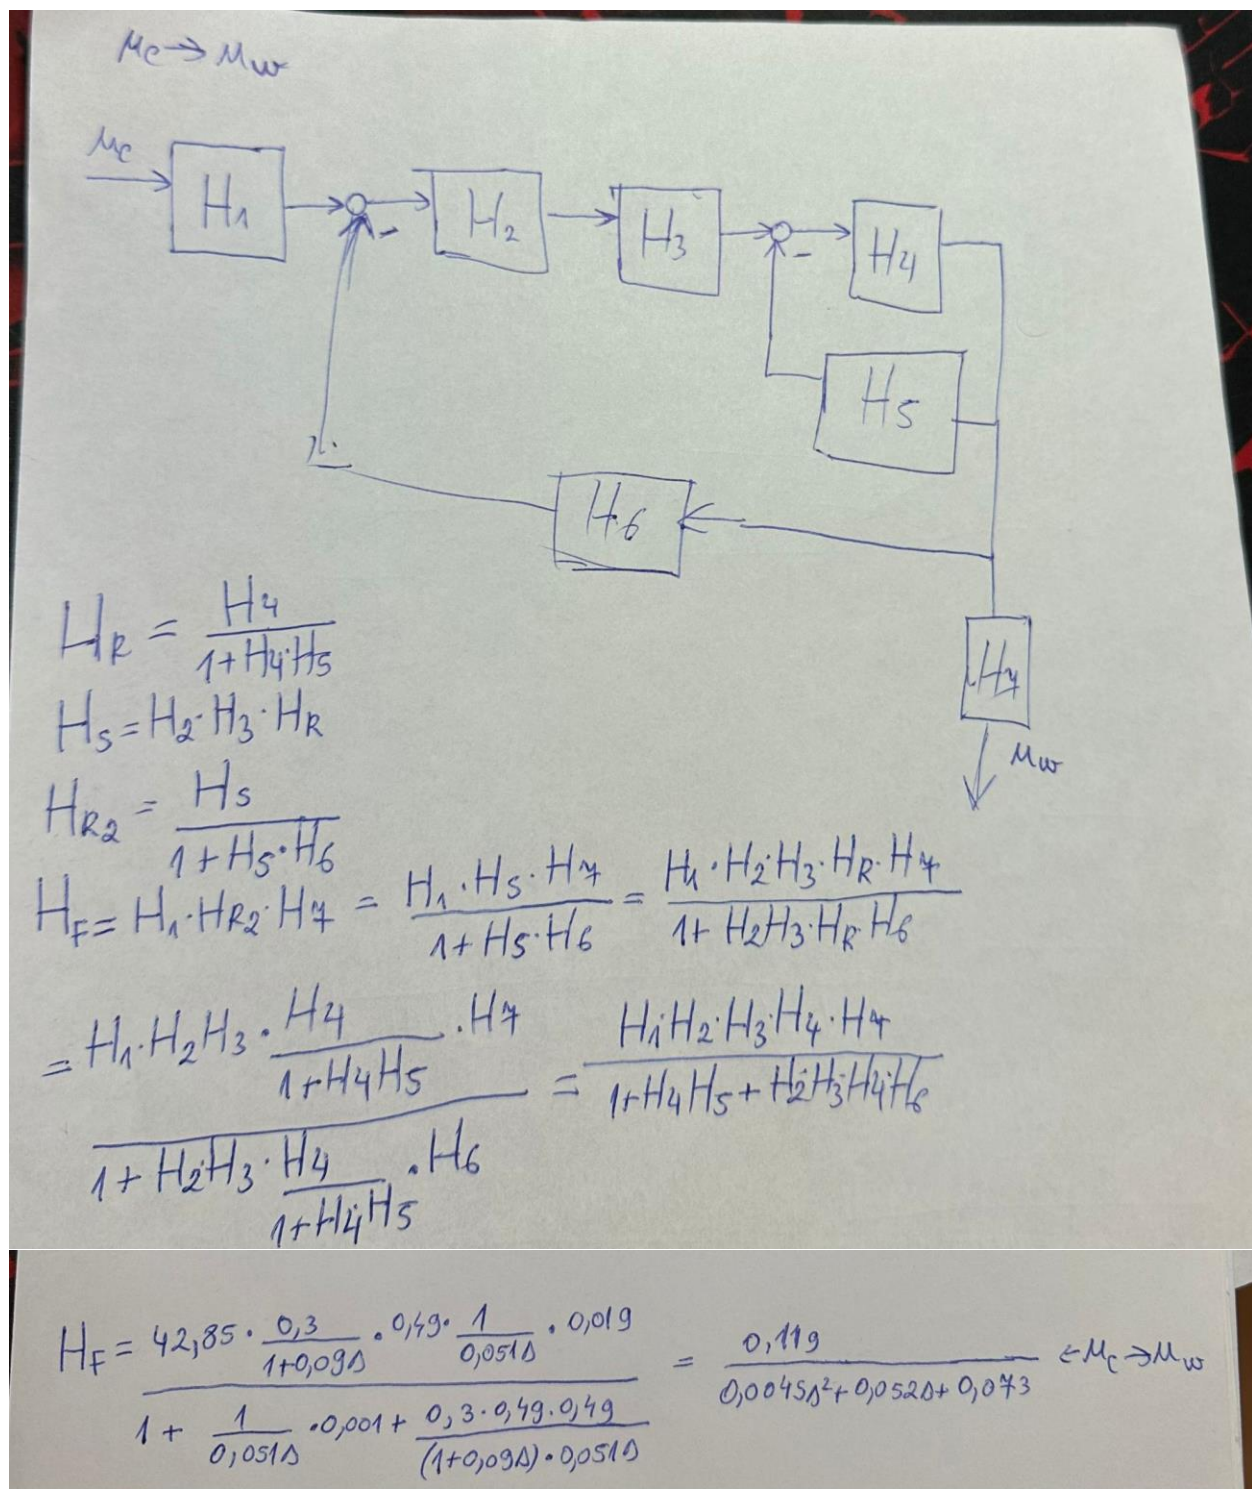 μc → μw
μc
H1
H2
H3
H4
-
-
H5
H6
H7
μw
HR = H4 / (1+H4·H5)
HS = H2·H3·HR
HR2 = HS / (1+HS·H6)
HF = H1·HR2·H7 = (H1·HS·H7) / (1+HS·H6) = (H1·H2·H3·HR·H7) / (1+H2H3·HR·H6)
= (H1·H2H3·H4/(1+H4H5)·H7) / (1+H2H3·H4/(1+H4H5)·H6) = (H1H2·H3·H4·H7) / (1+H4H5+H2H3H4H6)
HF = (42,85·0,3/(1+0,09s)·0,49·1/(0,051s)·0,019) / (1+1/(0,051s)·0,001+(0,3·0,49·0,49)/((1+0,09s)·0,051s)) = 0,119 / (0,0045s²+0,052s+0,073) ← μc → μw